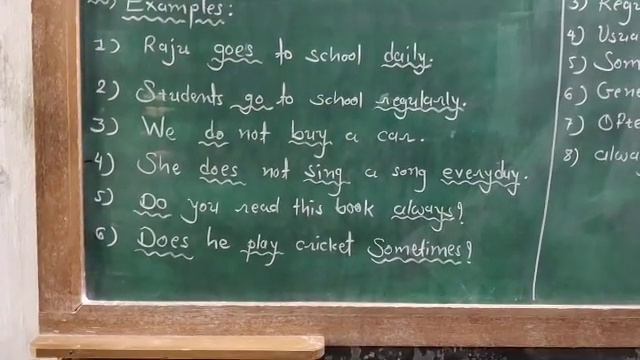 Examples:
1) Raju goes to school daily.
2) Students go to school regularly.
3) We do not buy a car.
4) She does not sing a song everyday.
5) Do you read this book always?
6) Does he play cricket Sometimes?
3) Regu
4) Usua
5) Som
6) Gene
7) Ofte
8) alway